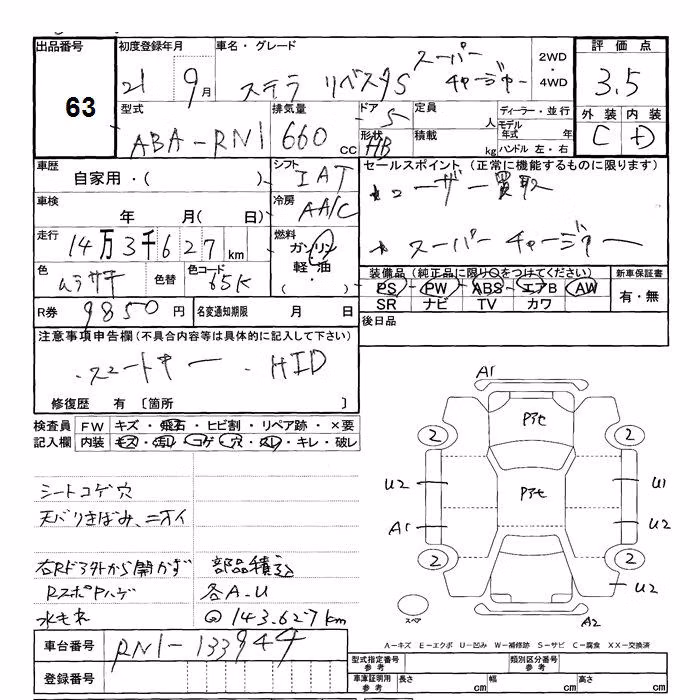 出品番号 初度登録年月 車名・グレード 2WD・4WD 評価点
63 21 9月 ステラ リベスタS スーパーチャージャー 3.5
型式 排気量 ドア 定員 ディーラー・並行 外装 内装
ABA-RN1 660cc 5 人 モデル年式 年 C D
形状 HB 積載 kg ハンドル 左・右
車歴 自家用・( ) シフト IAT セールスポイント (正常に機能するものに限ります)
ユーザー買取
車検 年 月(日) 冷房 AA/C
走行 14万3千627km 燃料 ガソリン 軽油 ・( )
スーパーチャージャー
色 ムラサキ 色替 色コード 65K 装備品 (純正品に限り○をつけてください) 新車保証書
PS・PW・ABS・エアB・AW 有・無
SR ナビ TV カワ
R券 9850円 名変通知期限 月 日 後日品
注意事項申告欄 (不具合内容等は具体的に記入して下さい)
・スマートキー ・HID
修復歴 有 〔箇所 〕
検査員 FW キズ・飛石・ヒビ割・リペア跡・×要
記入欄 内装 キズ・汚レ・コゲ・穴・スレ・キレ・破レ
シートコゲ穴
天バリきばみ、ニオイ
右Rドア外から開かず 部品積込
RスポPハゲ 各A.U
水もれ @143.627km
A1
Pアセ
2 2
U2 Pアセ U1
A1 U2
2 2
U2
スペア A2
A-キズ E-エクボ U-凹み W-補修跡 S-サビ C-腐食 XX-交換済
車台番号 RN1-133944
型式指定番号 参考 類別区分番号 参考
登録番号 車庫証明用 参考 長さ cm 幅 cm 高さ cm